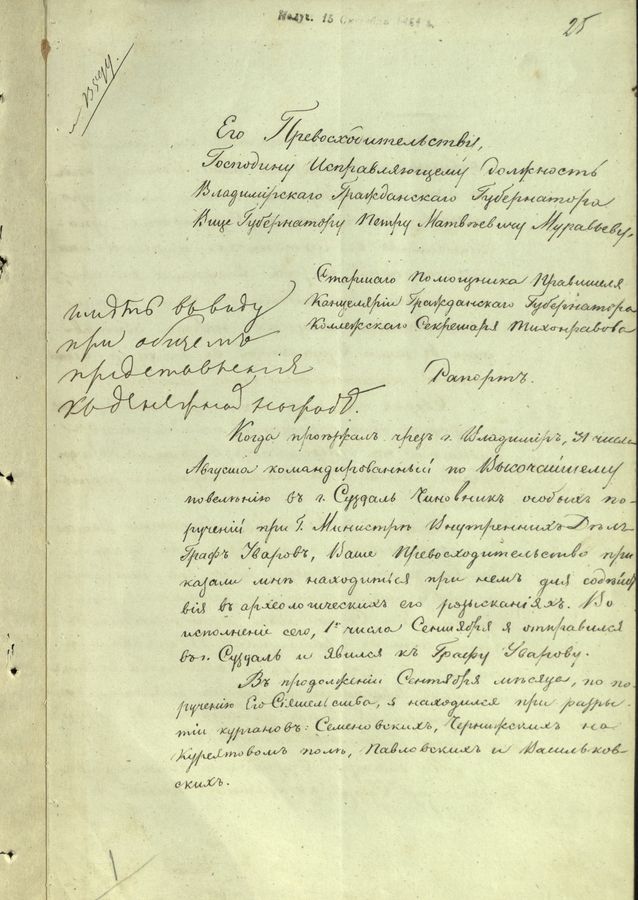 Получ. 15 Октября 1851 г.
25
Его Превосходительству,
Господину Исправляющему должность
Владимирскаго Гражданскаго Губернатора
Вице Губернатору Петру Матвѣевичу Муравьеву,
Старшаго Помощника Правителя
Канцеляріи Гражданскаго Губернатора
Коллежскаго Секретаря Тихонравова
имѣть въ виду
при общемъ
представленіи
къ денежной наградѣ.
Рапортъ.
Когда проѣзжалъ чрезъ г. Владиміръ, 31 числа
Августа командированный по Высочайшему
повелѣнію въ г. Суздаль Чиновникъ особыхъ по-
рученій при Г. Министрѣ Внутреннихъ Дѣлъ
Графъ Уваровъ, Ваше Превосходительство при
казали мнѣ находиться при немъ для содѣйст
вія въ археологическихъ его розысканіяхъ. Во
исполненіе сего, 1го числа Сентября я отправился
въ г. Суздаль и явился къ Графу Уварову.
Въ продолженіи Сентября мѣсяца, по по-
рученію Его Сіятельства, я находился при разры-
тіи кургановъ: Семеновскихъ, Чернижскихъ на
полѣ, Павловскихъ и Васильков-
скихъ.